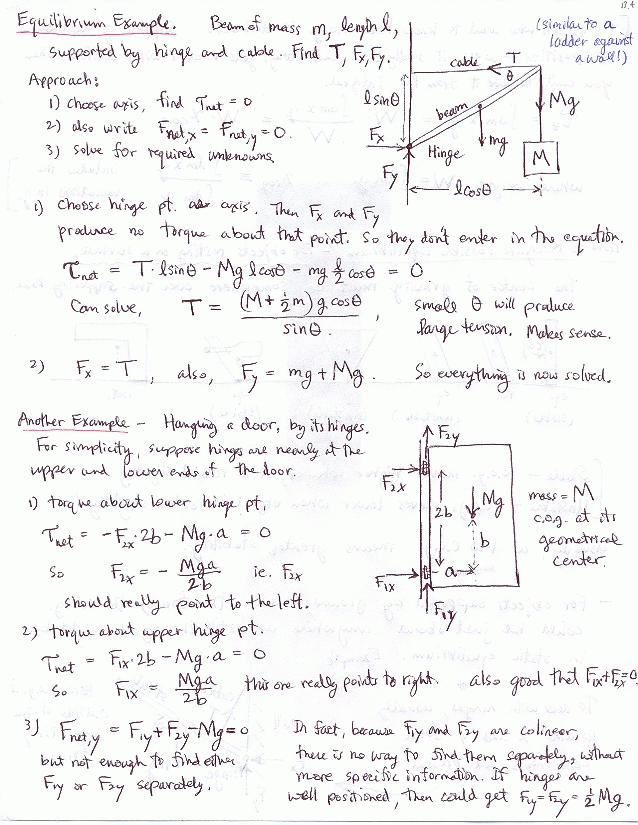 13.4
Equilibrium Example. Beam of mass m, length l,
supported by hinge and cable. Find T, Fx, Fy.
(similar to a
ladder against
a wall!)
Approach:
1) choose axis, find τnet = 0
2) also write Fnet,x = Fnet,y = 0.
3) solve for required unknowns.
cable T
θ
l sinθ
beam
Mg
mg
Fx
Hinge
M
Fy
l cosθ
1) Choose hinge pt. as axis. Then Fx and Fy
produce no torque about that point. So they don't enter in the equation.
τnet = T·l sinθ - Mg l cosθ - mg l/2 cosθ = 0
Can solve, T = (M + 1/2 m) g cosθ / sinθ , small θ will produce
large tension. Makes sense.
2) Fx = T , also, Fy = mg + Mg. So everything is now solved.
Another Example - Hanging a door, by its hinges.
For simplicity, suppose hinges are nearly at the
upper and lower ends of the door.
F2y
F2x
Mg
2b
b
a
F1x
F1y
mass = M
c.o.g. at its
geometrical
center.
1) torque about lower hinge pt.
τnet = -F2x·2b - Mg·a = 0
so F2x = - Mga/2b ie. F2x
should really point to the left.
2) torque about upper hinge pt.
τnet = F1x·2b - Mg·a = 0
so F1x = Mga/2b this one really points to right. also good that F1x+F2x=0
3) Fnet,y = F1y + F2y - Mg = 0
but not enough to find either
F1y or F2y separately.
In fact, because F1y and F2y are colinear,
there is no way to find them separately, without
more specific information. If hinges are
well positioned, then could get F1y = F2y = 1/2 Mg.